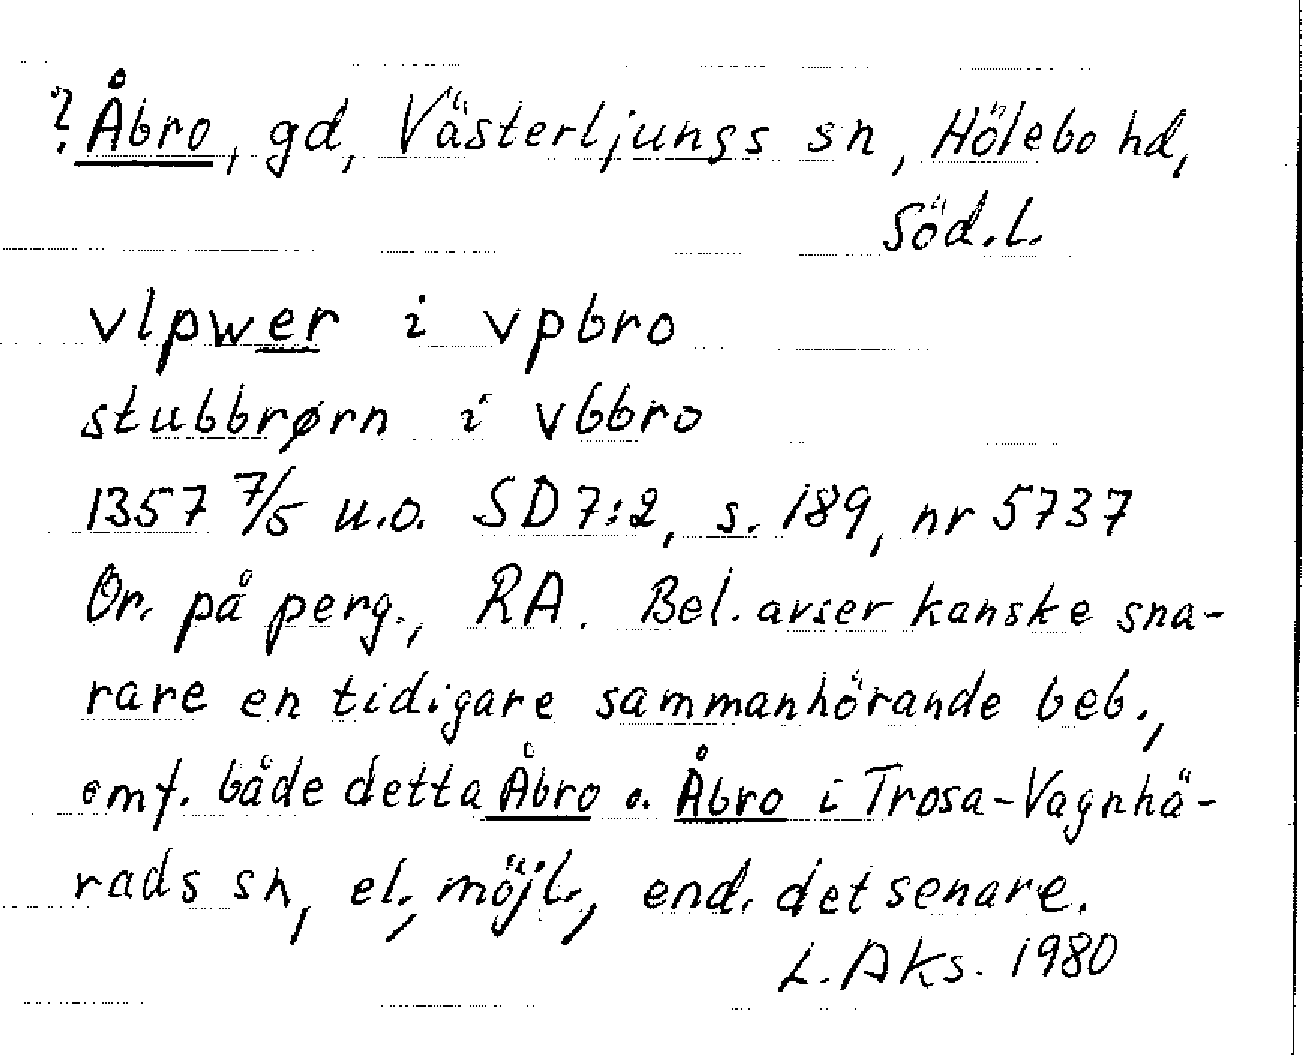 ? Åbro, gd, Västerljungs sn, Hölebo hd,
Söd.l.
vlpwer i vpbro
stubbrørn i vbbro
1357 7/5 u.o. SD 7:2, s. 189, nr 5737
Or. på perg., RA. Bel. avser kanske sna-
rare en tidigare sammanhörande beb.,
omf. både detta Åbro o. Åbro i Trosa-Vagnhä-
rads sn, el., möjl., end. det senare.
L. Aks. 1980